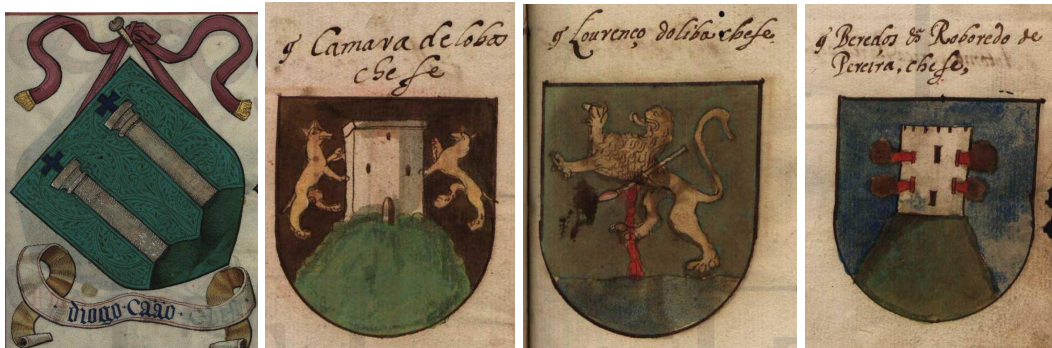 diogo · Caão ·
g̃ Camara de lobos
chefe
g̃ Lourenço doliba chefe
g̃ Beredos do Roboredo de
Pereira, chefe,